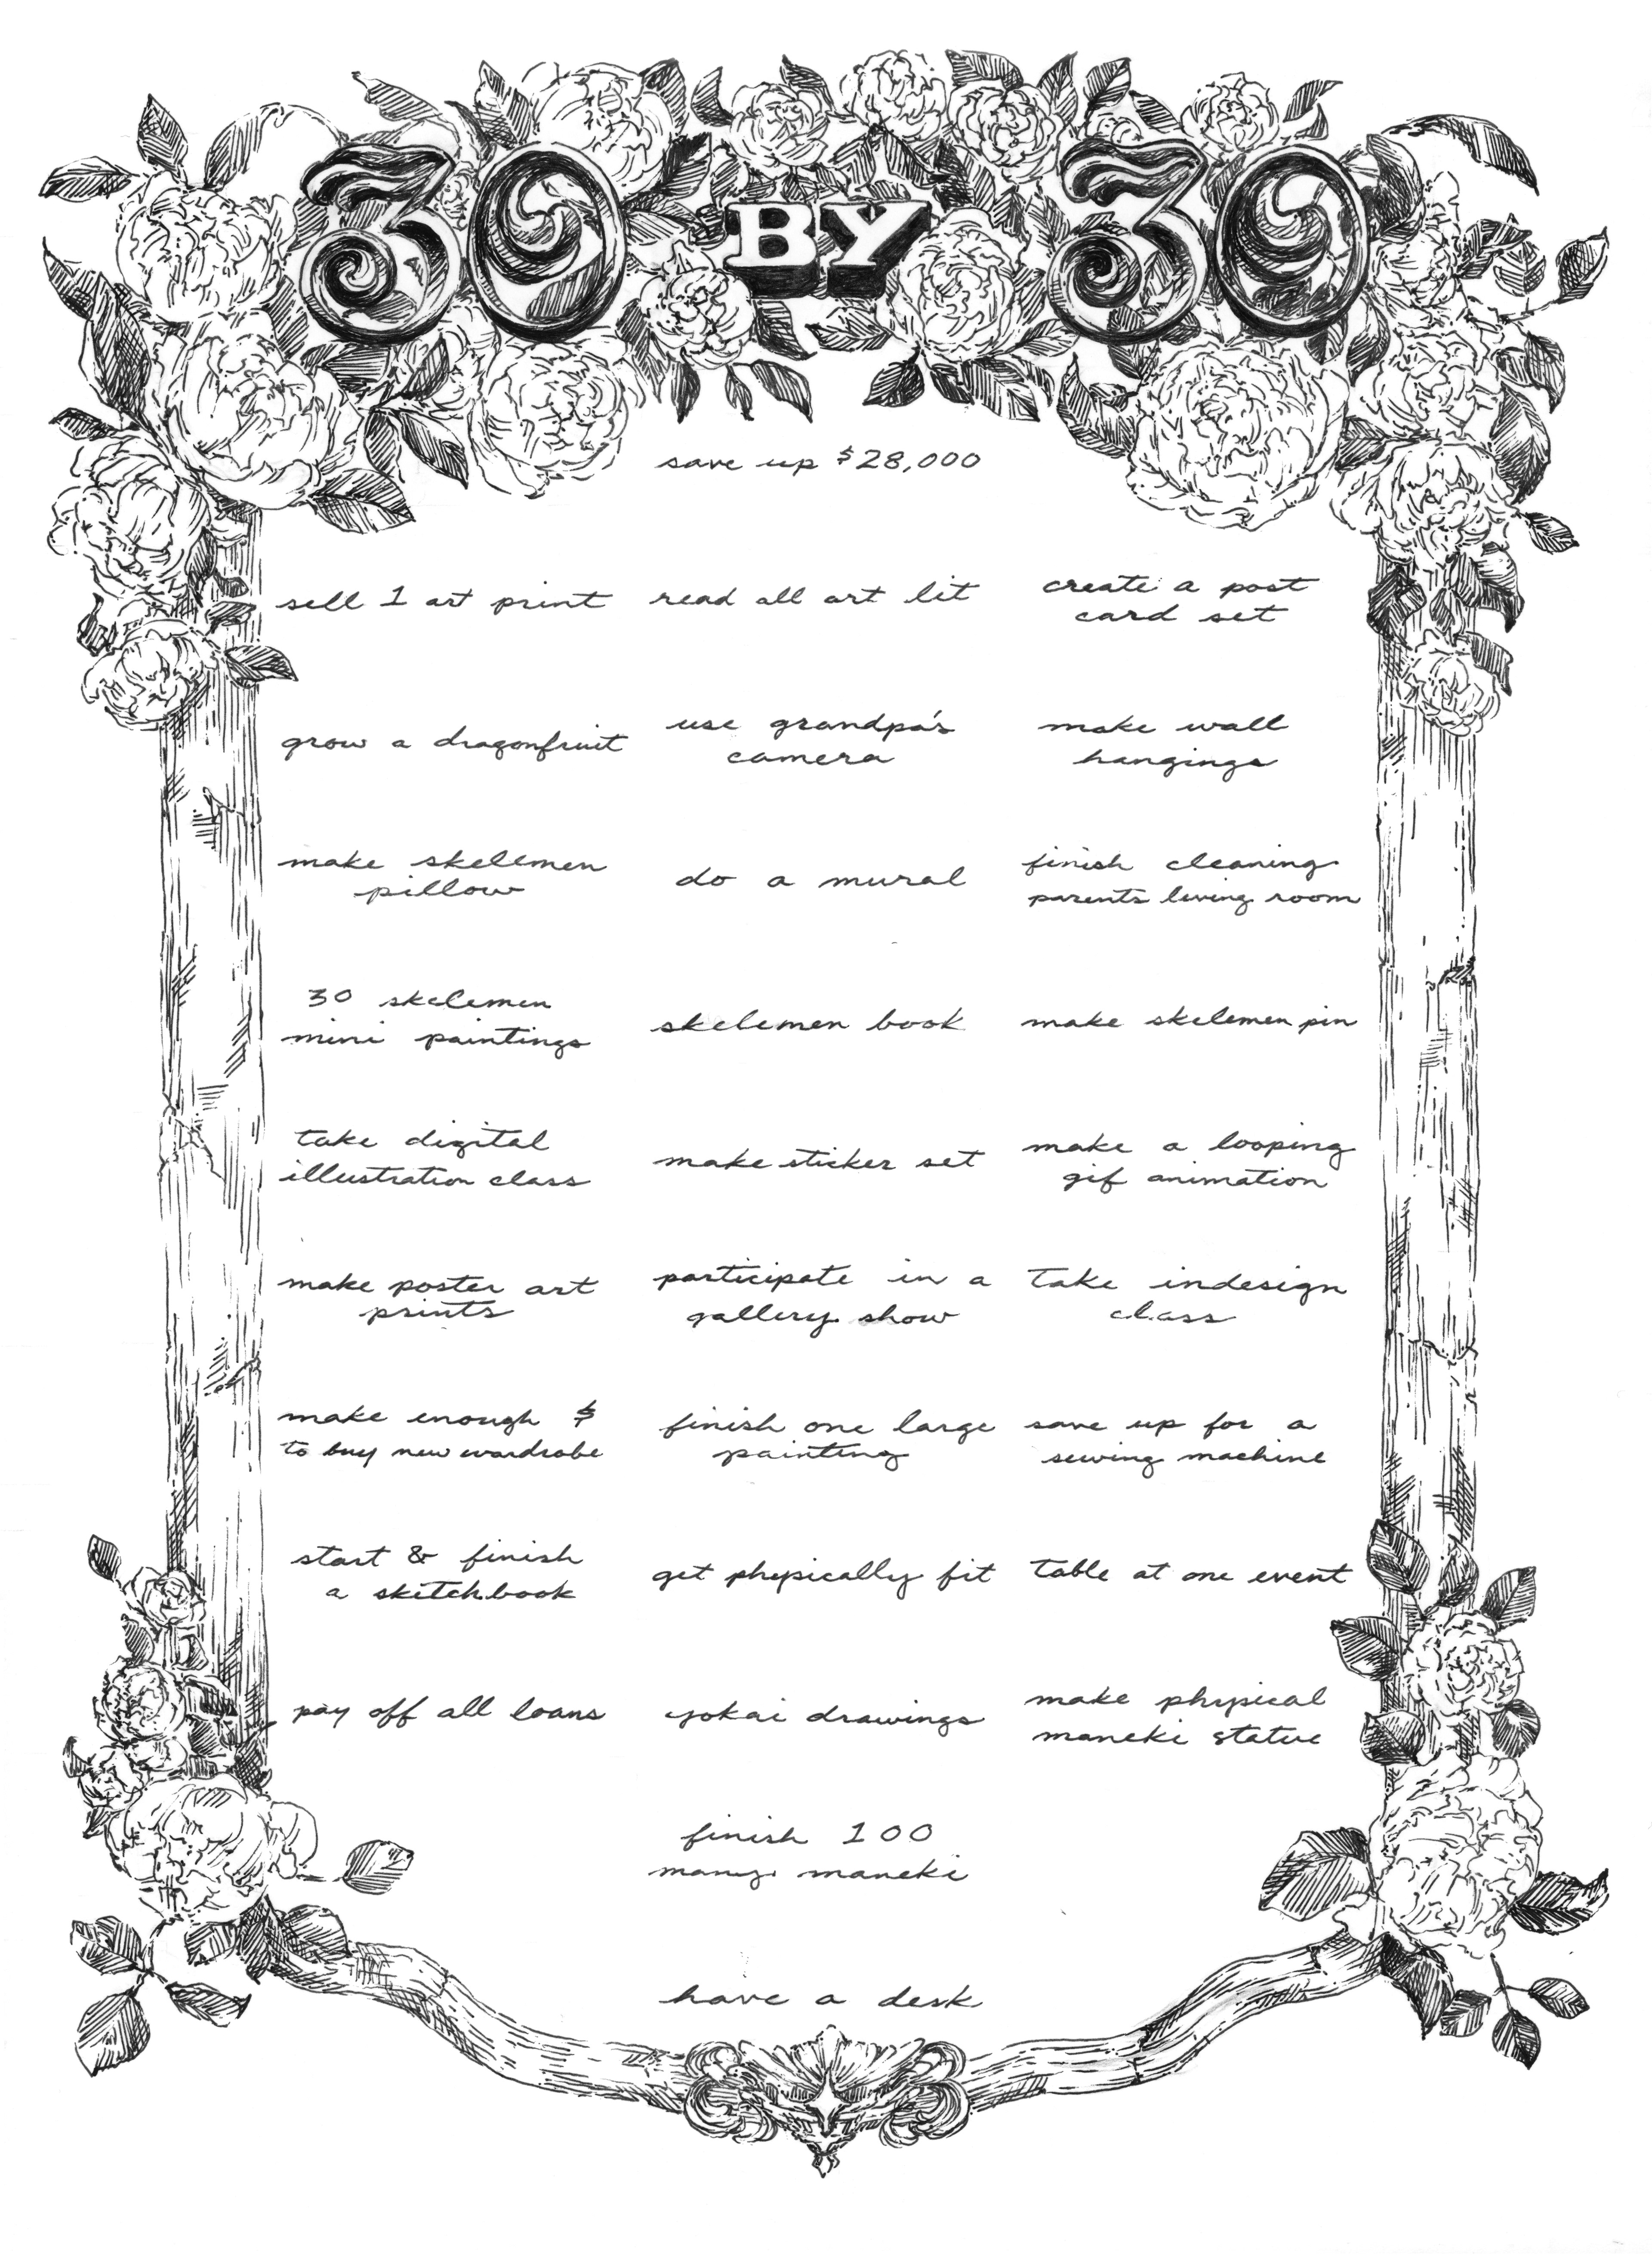 30 BY 30
save up $28,000
sell 1 art print
read all art lit
create a post
card set
grow a dragonfruit
use grandpa's
camera
make wall
hangings
make skelemen
pillow
do a mural
finish cleaning
parents living room
30 skelemen
mini paintings
skelemen book
make skelemen pin
take digital
illustration class
make sticker set
make a looping
gif animation
make poster art
prints
participate in a
gallery show
take indesign
class
make enough $
to buy new wardrobe
finish one large
painting
save up for a
sewing machine
start & finish
a sketchbook
get physically fit
table at one event
pay off all loans
yokai drawings
make physical
maneki statue
finish 100
many maneki
have a desk